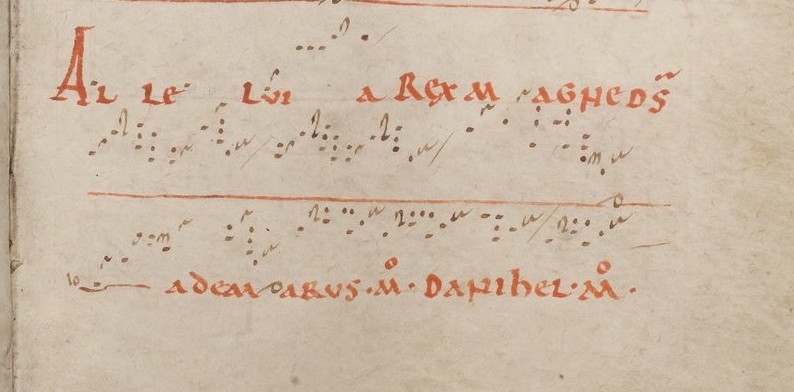 AL LE LUI A REX MAGNE DS̃
ADEMARUS·M̊· DANIhEL·M̊·